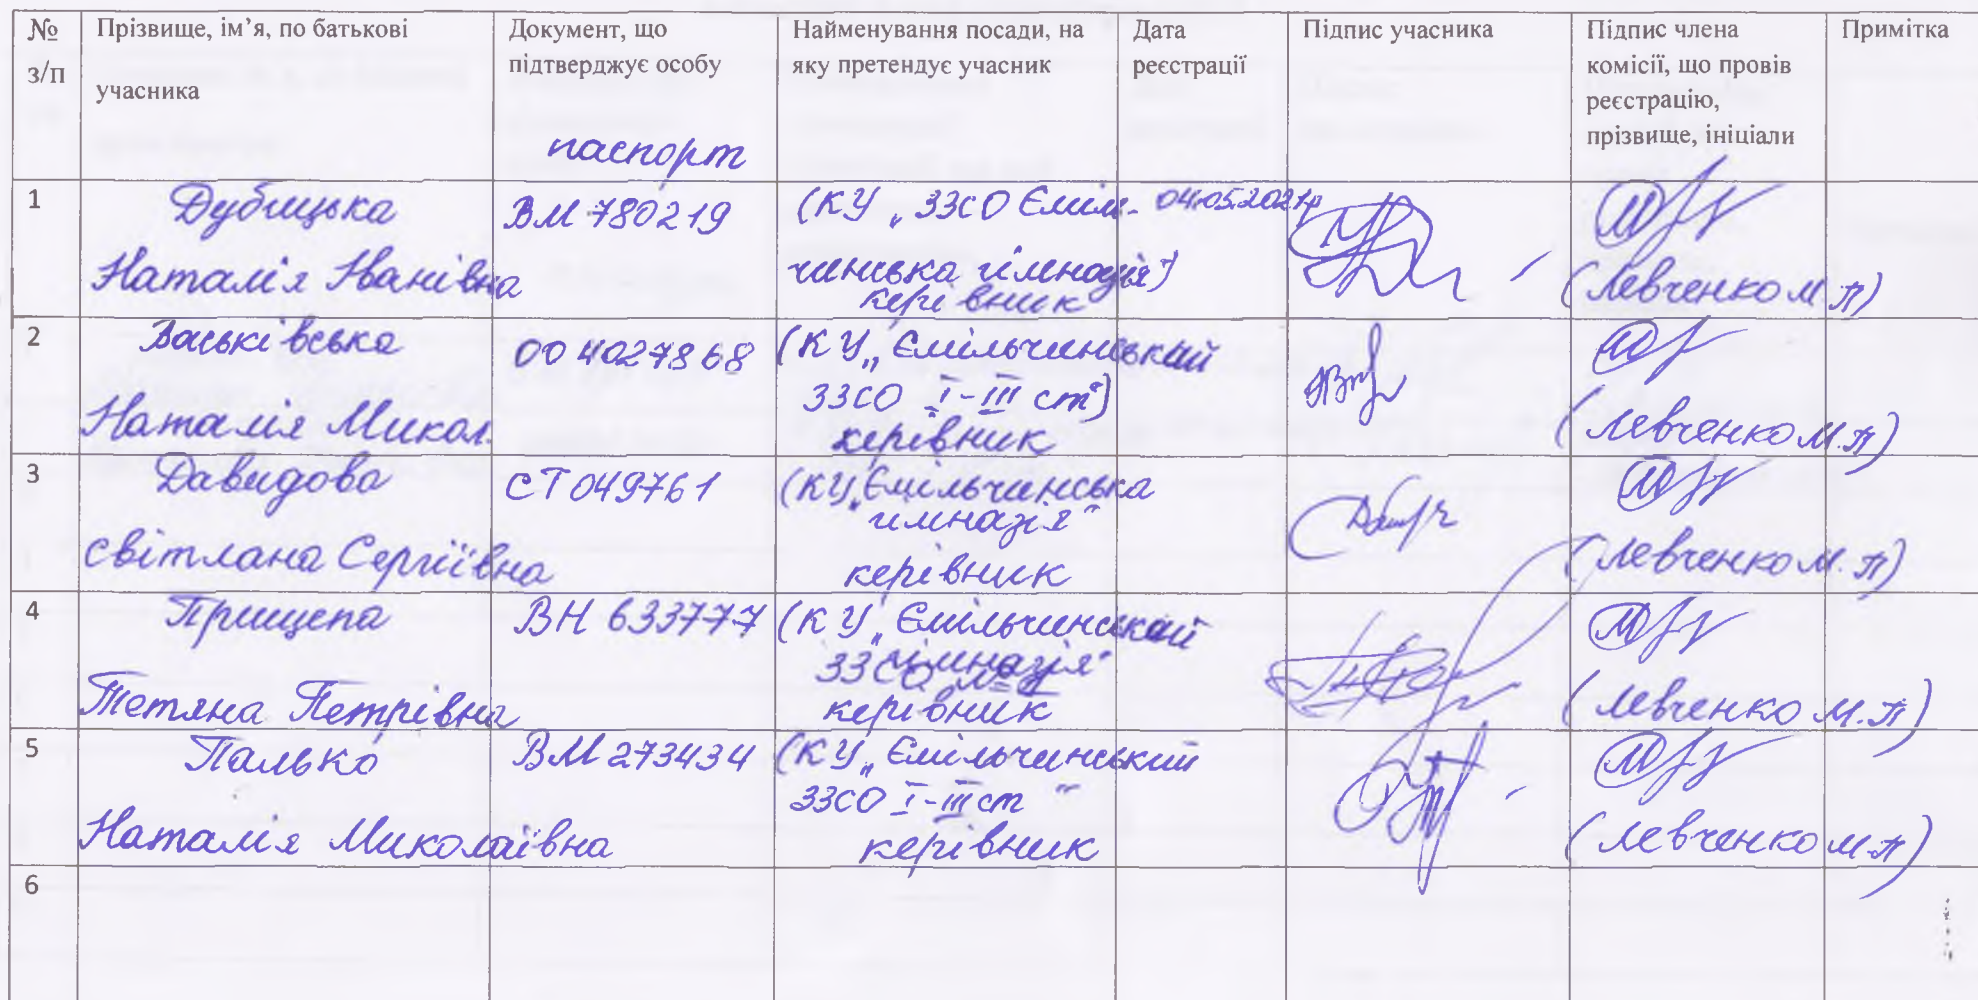 № з/п
Прізвище, ім’я, по батькові
учасника
Документ, що
підтверджує особу
паспорт
Найменування посади, на
яку претендує учасник
Дата
реєстрації
Підпис учасника
Підпис члена
комісії, що провів
реєстрацію,
прізвище, ініціали
Примітка
1
Дубицька
Наталія Іванівна
ВМ 780219
(КУ „ЗЗСО Єміль-
чинська гімназія")
керівник
04.05.2021р
(Левченко М.П)
2
Васьківська
Наталія Микол.
004027868
(КУ „Ємільчинський
ЗЗСО І-ІІІ ст")
керівник
(Левченко М.П)
3
Давидова
Світлана Сергіївна
СТ 049761
(КУ „Ємільчинська
гімназія"
керівник
(Левченко М.П)
4
Прищепа
Тетяна Петрівна
ВН 633777
(КУ „Ємільчинський
ЗЗСО гімназія"
керівник
(Левченко М.П)
5
Палько
Наталія Миколаївна
ВМ 273434
(КУ „Ємільчинський
ЗЗСО І-ІІІ ст "
керівник
(Левченко М.П)
6